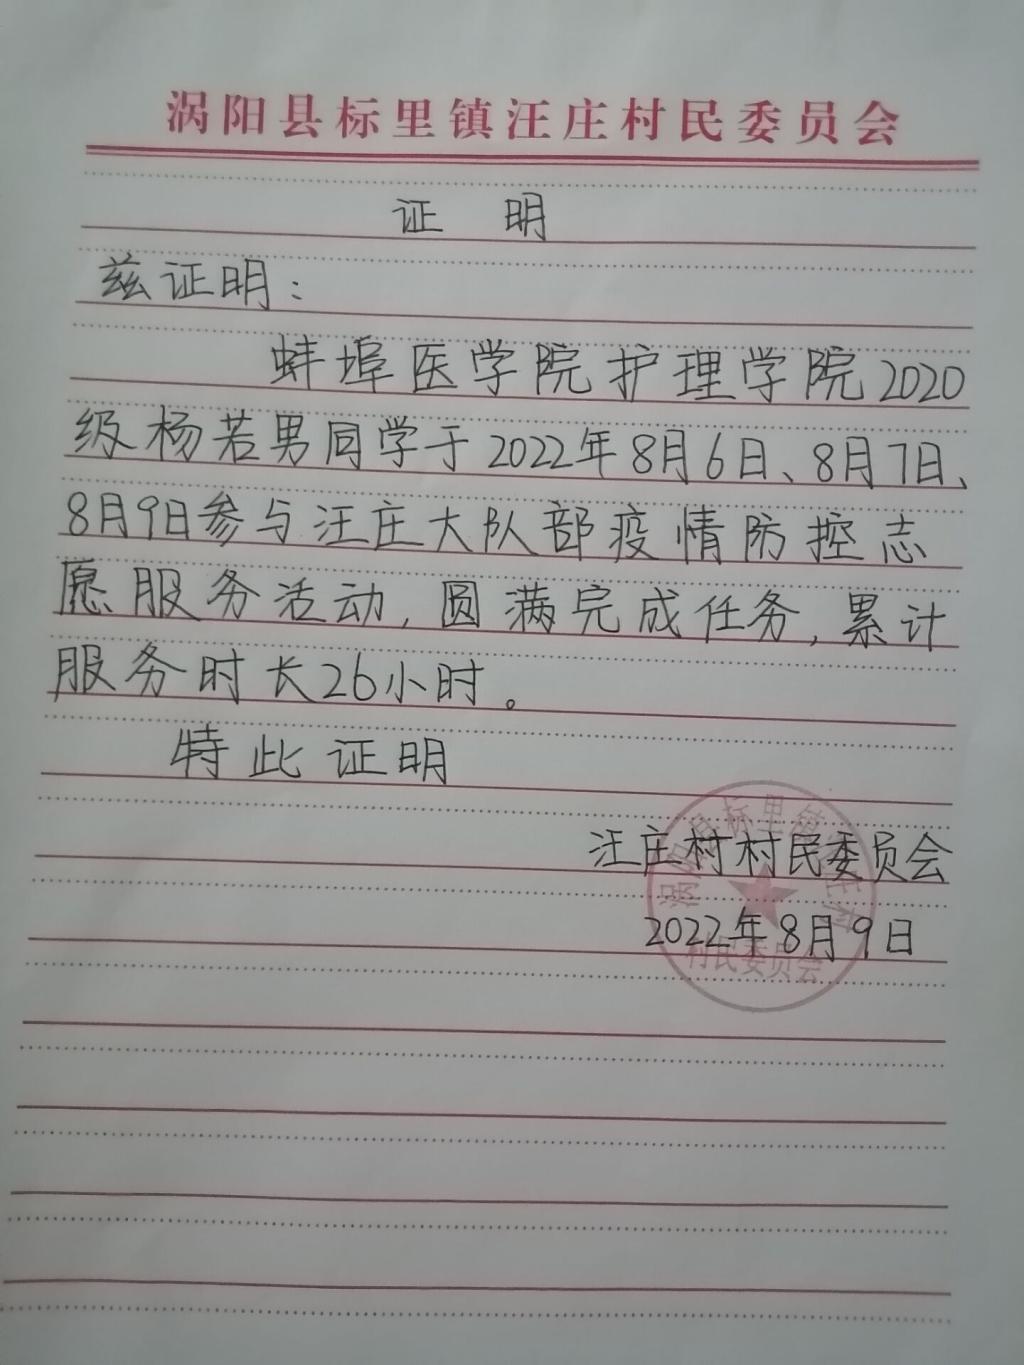 涡阳县标里镇汪庄村民委员会
证 明
兹证明：
蚌埠医学院护理学院2020
级杨若男同学于2022年8月6日、8月7日、
8月9日参与汪庄大队部疫情防控志
愿服务活动，圆满完成任务，累计
服务时长26小时。
特此证明
汪庄村村民委员会
2022年8月9日
涡阳县标里镇汪庄村
村民委员会